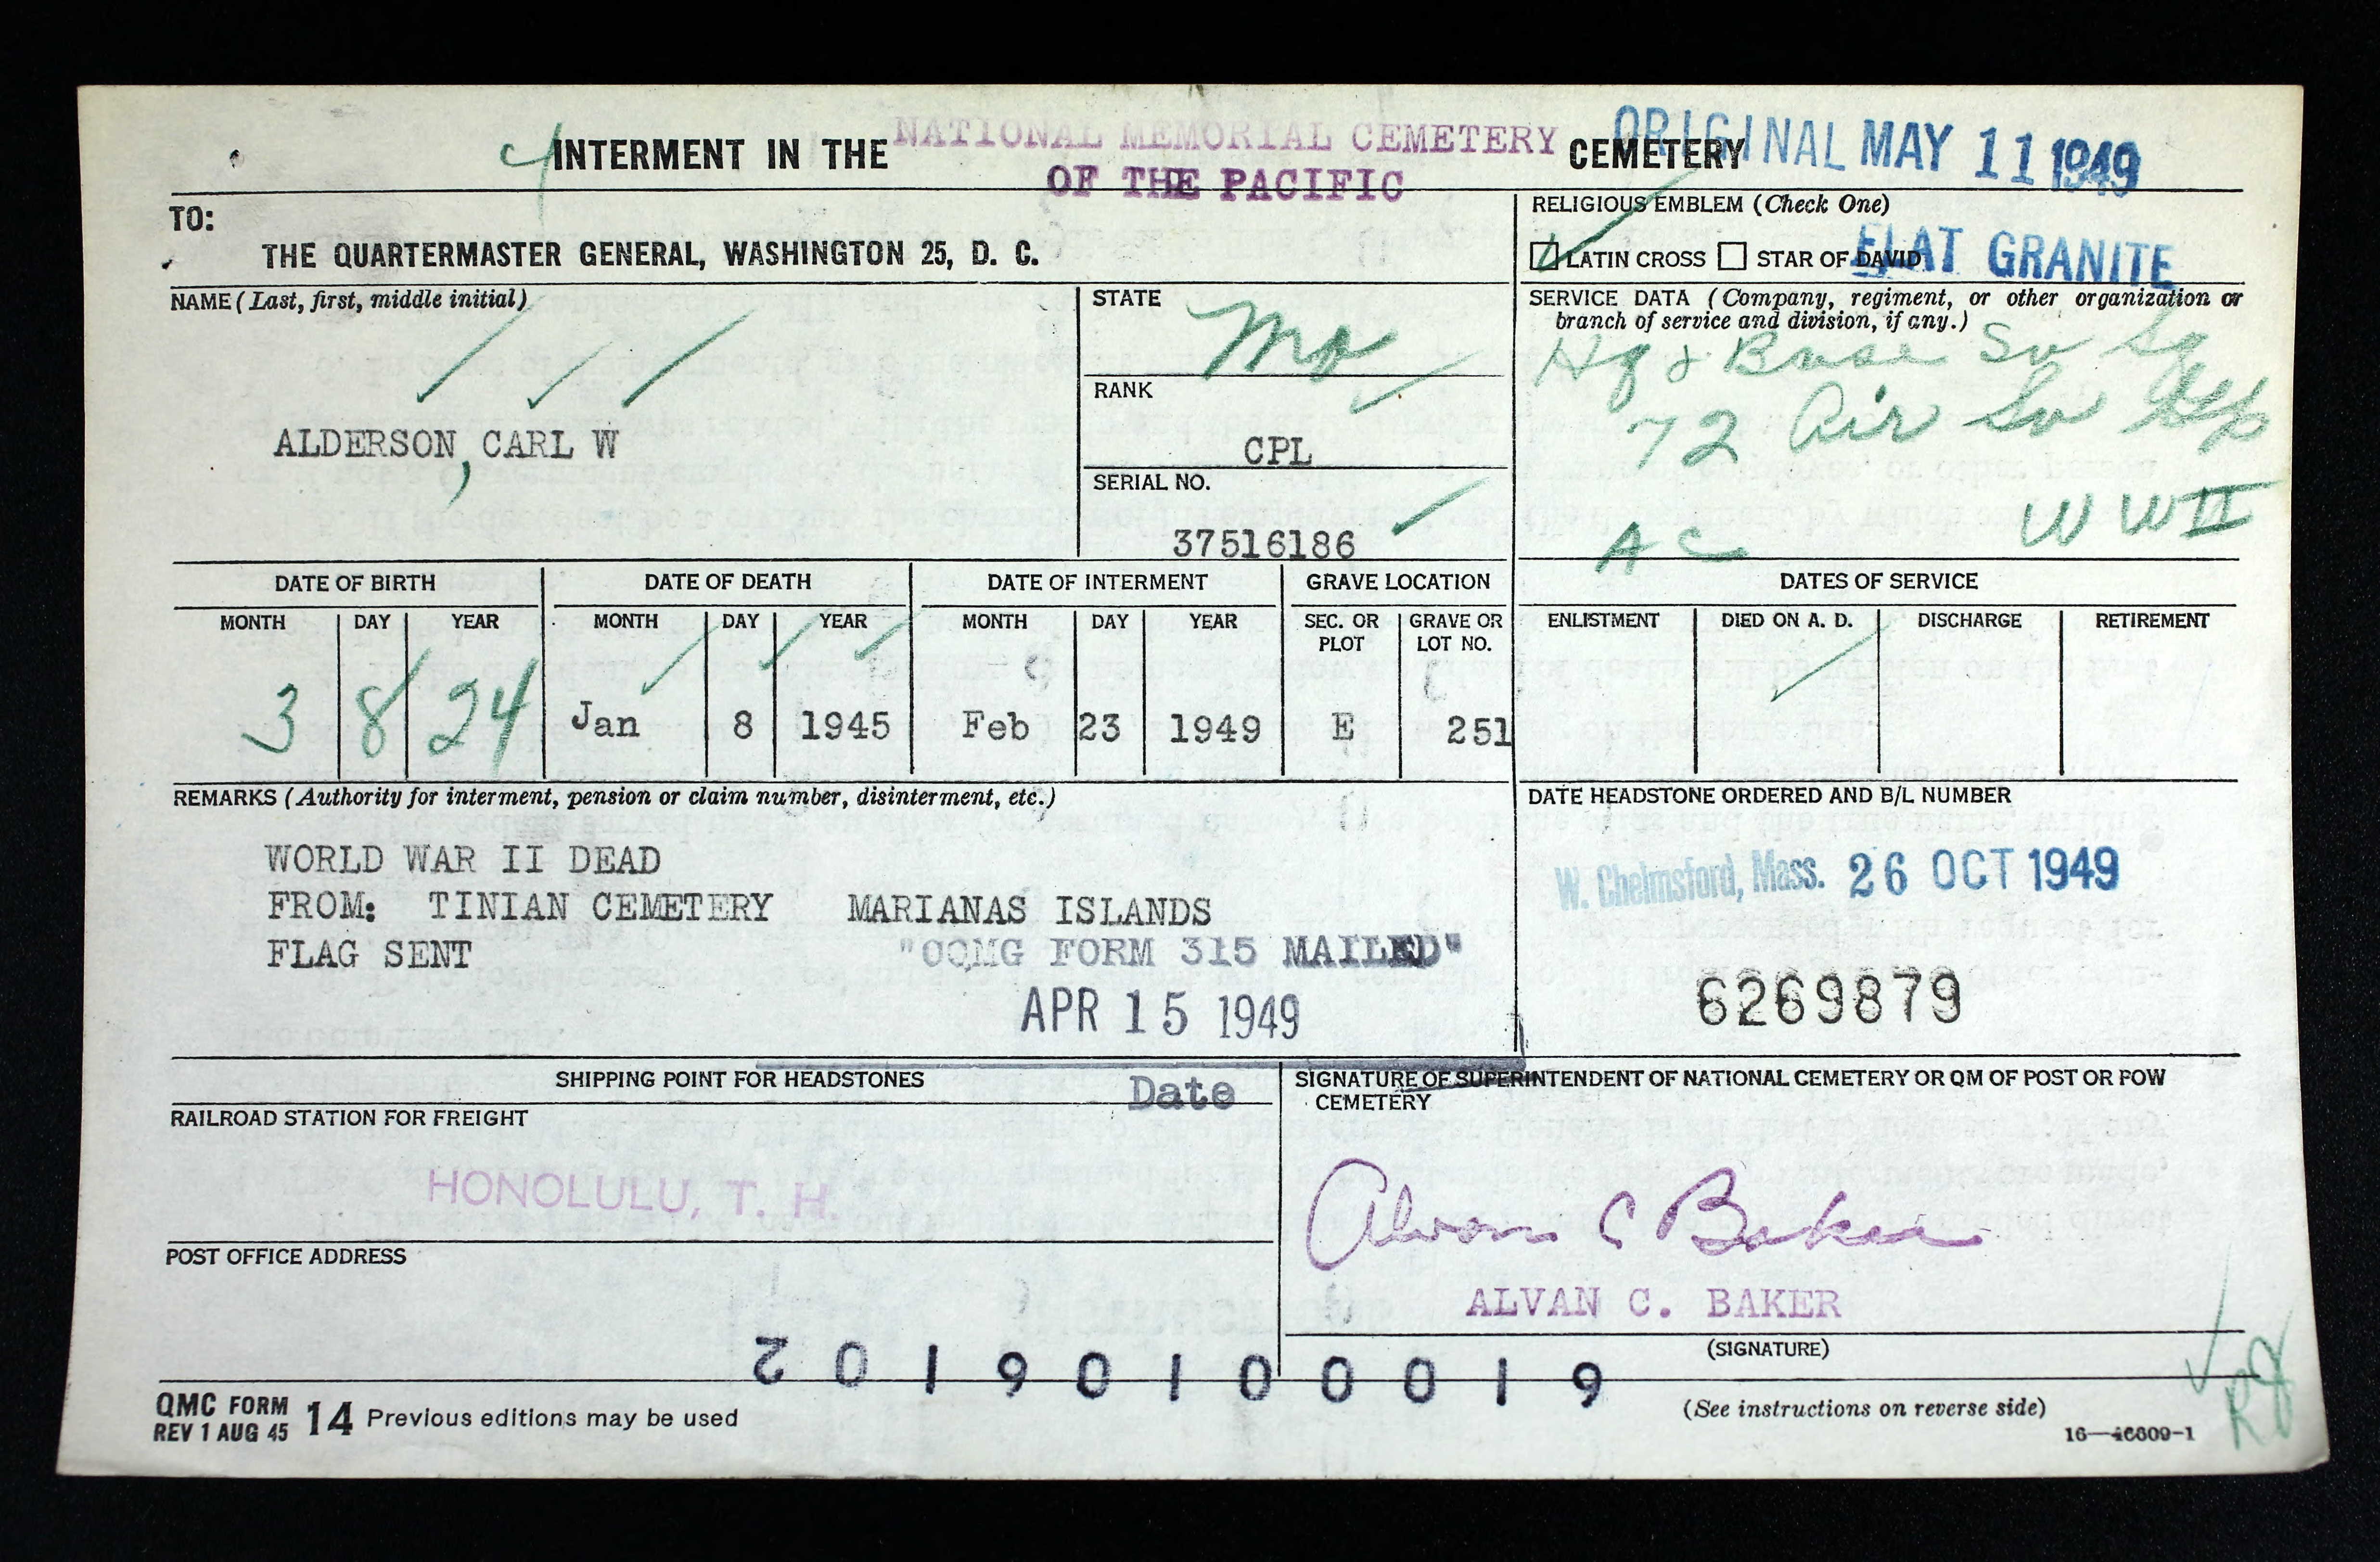 INTERMENT IN THE NATIONAL MEMORIAL CEMETERY OF THE PACIFIC CEMETERY
ORIGINAL MAY 11 1949
TO:
THE QUARTERMASTER GENERAL, WASHINGTON 25, D. C.
RELIGIOUS EMBLEM (Check One)
LATIN CROSS STAR OF DAVID
FLAT GRANITE
NAME (Last, first, middle initial)
ALDERSON, CARL W
STATE
Mo
RANK
CPL
SERIAL NO.
37516186
SERVICE DATA (Company, regiment, or other organization or
branch of service and division, if any.)
Hq & Base Sv Sq
72 Air Sv Gp
AC WWII
DATE OF BIRTH
MONTH DAY YEAR
3 8 24
DATE OF DEATH
MONTH DAY YEAR
Jan 8 1945
DATE OF INTERMENT
MONTH DAY YEAR
Feb 23 1949
GRAVE LOCATION
SEC. OR PLOT
GRAVE OR LOT NO.
E 251
DATES OF SERVICE
ENLISTMENT DIED ON A. D. DISCHARGE RETIREMENT
REMARKS (Authority for interment, pension or claim number, disinterment, etc.)
WORLD WAR II DEAD
FROM: TINIAN CEMETERY MARIANAS ISLANDS
FLAG SENT
"OQMG FORM 315 MAILED"
APR 15 1949
Date
DATE HEADSTONE ORDERED AND B/L NUMBER
W. Chelmsford, Mass. 26 OCT 1949
6269879
SHIPPING POINT FOR HEADSTONES
RAILROAD STATION FOR FREIGHT
HONOLULU, T. H.
POST OFFICE ADDRESS
SIGNATURE OF SUPERINTENDENT OF NATIONAL CEMETERY OR QM OF POST OR POW
CEMETERY
Alvan C Baker
ALVAN C. BAKER
(SIGNATURE)
61000106102
QMC FORM 14 Previous editions may be used
REV 1 AUG 45
(See instructions on reverse side)
16—46609-1